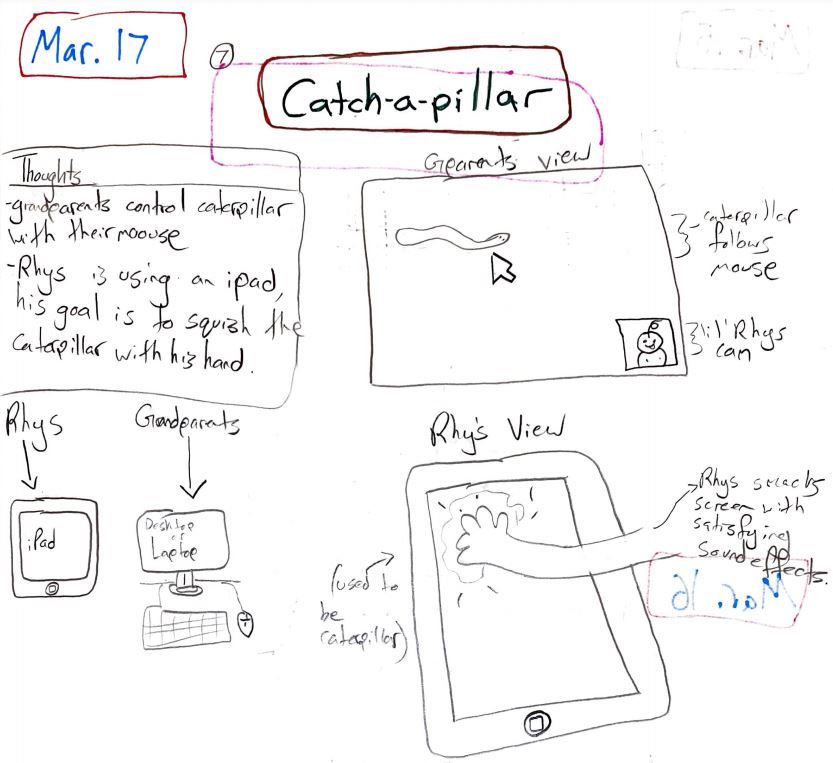 Mar. 17
7
Catch-a-pillar
Thoughts
-grandparents control caterpillar
with their moouse
-Rhys is using an ipad,
his goal is to squish the
catapillar with his hand.
Gparents view
-caterpillar
follows
mouse
lil' Rhys
cam
Rhys
Grandparents
iPad
Desktop
or
Laptop
Rhy's View
Rhys smacks
screen with
satisfying
sound effects.
(used to
be
catapillar)
Mar. 16